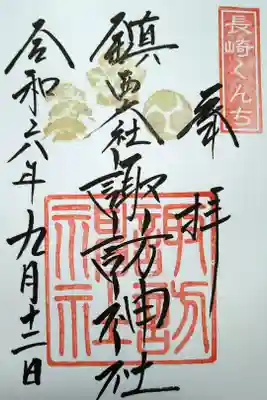 長崎くんち
奉拝
鎮西大社諏訪神社
令和六年九月十二日